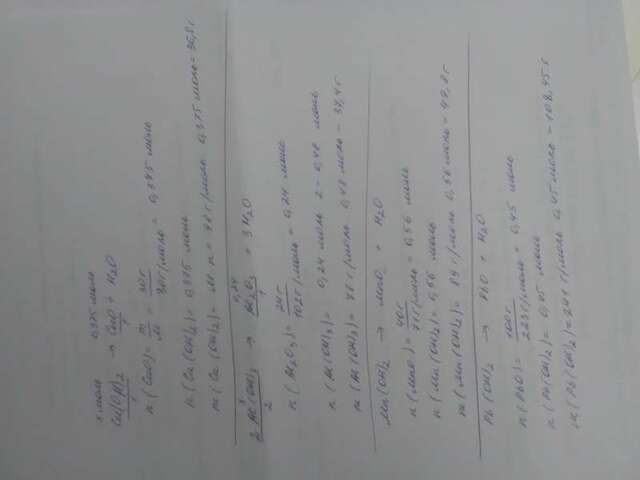 x моль 0,375 моль
Cu(OH)₂ → CuO + H₂O
1 1
n(CuO) = m/M = 30г/80г/моль = 0,375 моль
n(Cu(OH)₂) = 0,375 моль
m(Cu(OH)₂) = M · n = 98 г/моль · 0,375 моль = 36,8 г
x 0,24
2Al(OH)₃ → Al₂O₃ + 3H₂O
2 1
n(Al₂O₃) = 24г/102г/моль = 0,24 моль
n(Al(OH)₃) = 0,24 моль · 2 = 0,48 моль
m(Al(OH)₃) = 78 г/моль · 0,48 моль = 37,4 г
Mn(OH)₂ → MnO + H₂O
n(MnO) = 40г/71г/моль = 0,56 моль
n(Mn(OH)₂) = 0,56 моль
m(Mn(OH)₂) = 89 г/моль · 0,56 моль = 49,8 г
Pb(OH)₂ → PbO + H₂O
n(PbO) = 100г/223г/моль = 0,45 моль
n(Pb(OH)₂) = 0,45 моль
m(Pb(OH)₂) = 241 г/моль · 0,45 моль = 108,45 г